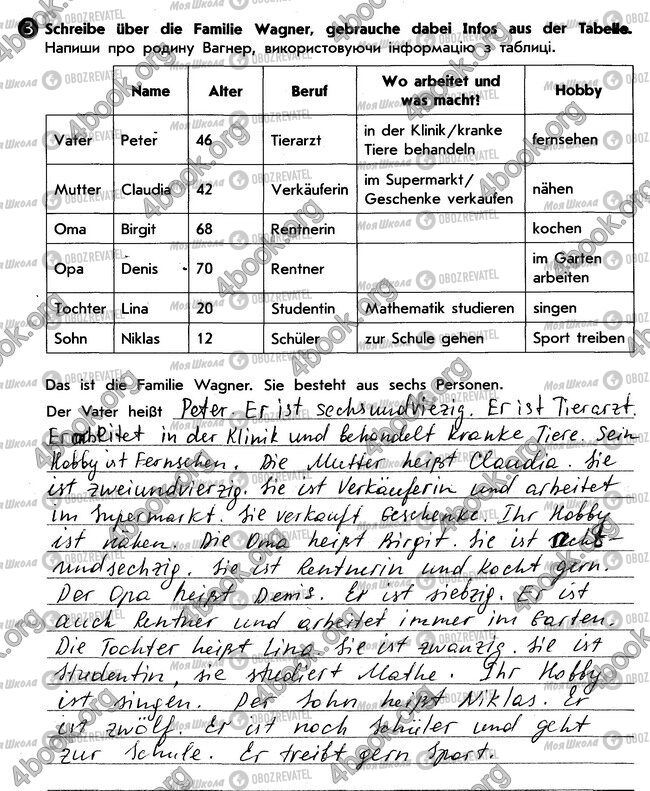 3 Schreibe über die Familie Wagner, gebrauche dabei Infos aus der Tabelle.
Напиши про родину Вагнер, використовуючи інформацію з таблиці.
Name Alter Beruf Wo arbeitet und was macht? Hobby
Vater Peter 46 Tierarzt in der Klinik/kranke Tiere behandeln fernsehen
Mutter Claudia 42 Verkäuferin im Supermarkt/ Geschenke verkaufen nähen
Oma Birgit 68 Rentnerin kochen
Opa Denis 70 Rentner im Garten arbeiten
Tochter Lina 20 Studentin Mathematik studieren singen
Sohn Niklas 12 Schüler zur Schule gehen Sport treiben
Das ist die Familie Wagner. Sie besteht aus sechs Personen.
Der Vater heißt Peter. Er ist sechsundvierzig. Er ist Tierarzt.
Er arbeitet in der Klinik und behandelt kranke Tiere. Sein
Hobby ist Fernsehen. Die Mutter heißt Claudia. Sie
ist zweiundvierzig. Sie ist Verkäuferin und arbeitet
im Supermarkt. Sie verkauft Geschenke. Ihr Hobby
ist nähen. Die Oma heißt Birgit. Sie ist acht-
undsechzig. Sie ist Rentnerin und kocht gern.
Der Opa heißt Denis. Er ist siebzig. Er ist
auch Rentner und arbeitet immer im Garten.
Die Tochter heißt Lina. Sie ist zwanzig. Sie ist
Studentin, sie studiert Mathe. Ihr Hobby
ist singen. Der Sohn heißt Niklas. Er
ist zwölf. Er ist noch Schüler und geht
zur Schule. Er treibt gern Sport.
4book.org
Моя Школа OBOZREVATEL